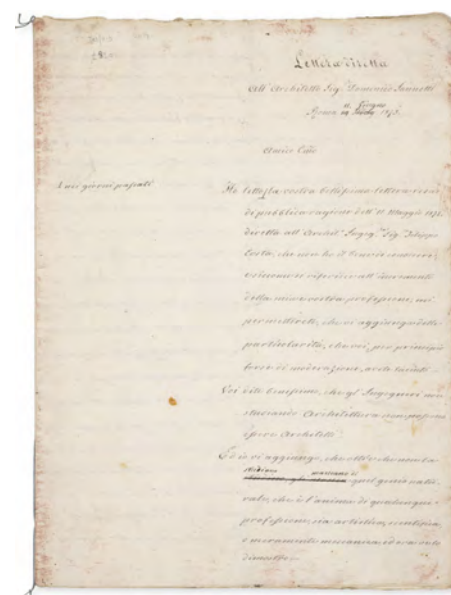 Lettera diretta
All' Architetto Sig.r Domenico Jannetti
11. Giugno
Roma 1875.
Amico Cmo
Nei giorni passati
Ho letto la vostra bellissima lettera resa
di pubblica ragione dell' 11 Maggio 1875.
diretta all' Archit.o Ingeg.re Sig. Filippo
che non ho il bene di conoscere;
e siccome si riferisce all'
della mia e vostra professione, mi
permetterete, che vi aggiunga delle
particolarità, che voi, per principio
forse di moderazione, avete taciute.
Voi dite benissimo, che gl' Ingegneri non
studiando Architettura non possono
essere Architetti.
Ed io vi aggiungo, che oltre che non la
studiano mancano di
quel genio natu-
rale, che è l'anima di qualunque
professione, sia artistica, scientifica,
o meramente meccanica, ed ora ve lo
dimostro.